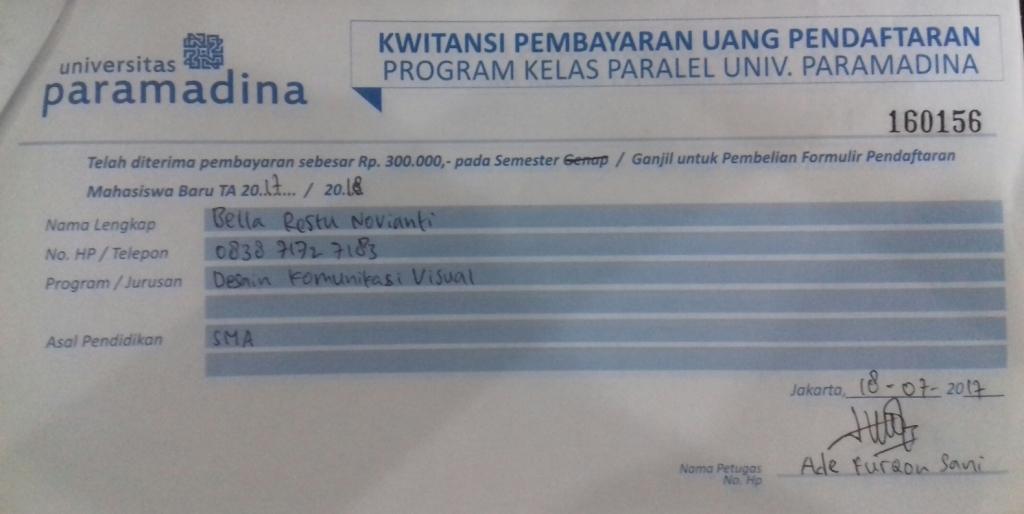 universitas
paramadina
KWITANSI PEMBAYARAN UANG PENDAFTARAN
PROGRAM KELAS PARALEL UNIV. PARAMADINA
160156
Telah diterima pembayaran sebesar Rp. 300.000,- pada Semester Genap / Ganjil untuk Pembelian Formulir Pendaftaran
Mahasiswa Baru TA 20.17... / 20.18
Nama Lengkap Bella Restu Novianti
No. HP / Telepon 0838 7172 7183
Program / Jurusan Desain Komunikasi Visual
Asal Pendidikan SMA
Jakarta, 18-07-2017
Nama Petugas Ade Furqon Sani
No. Hp